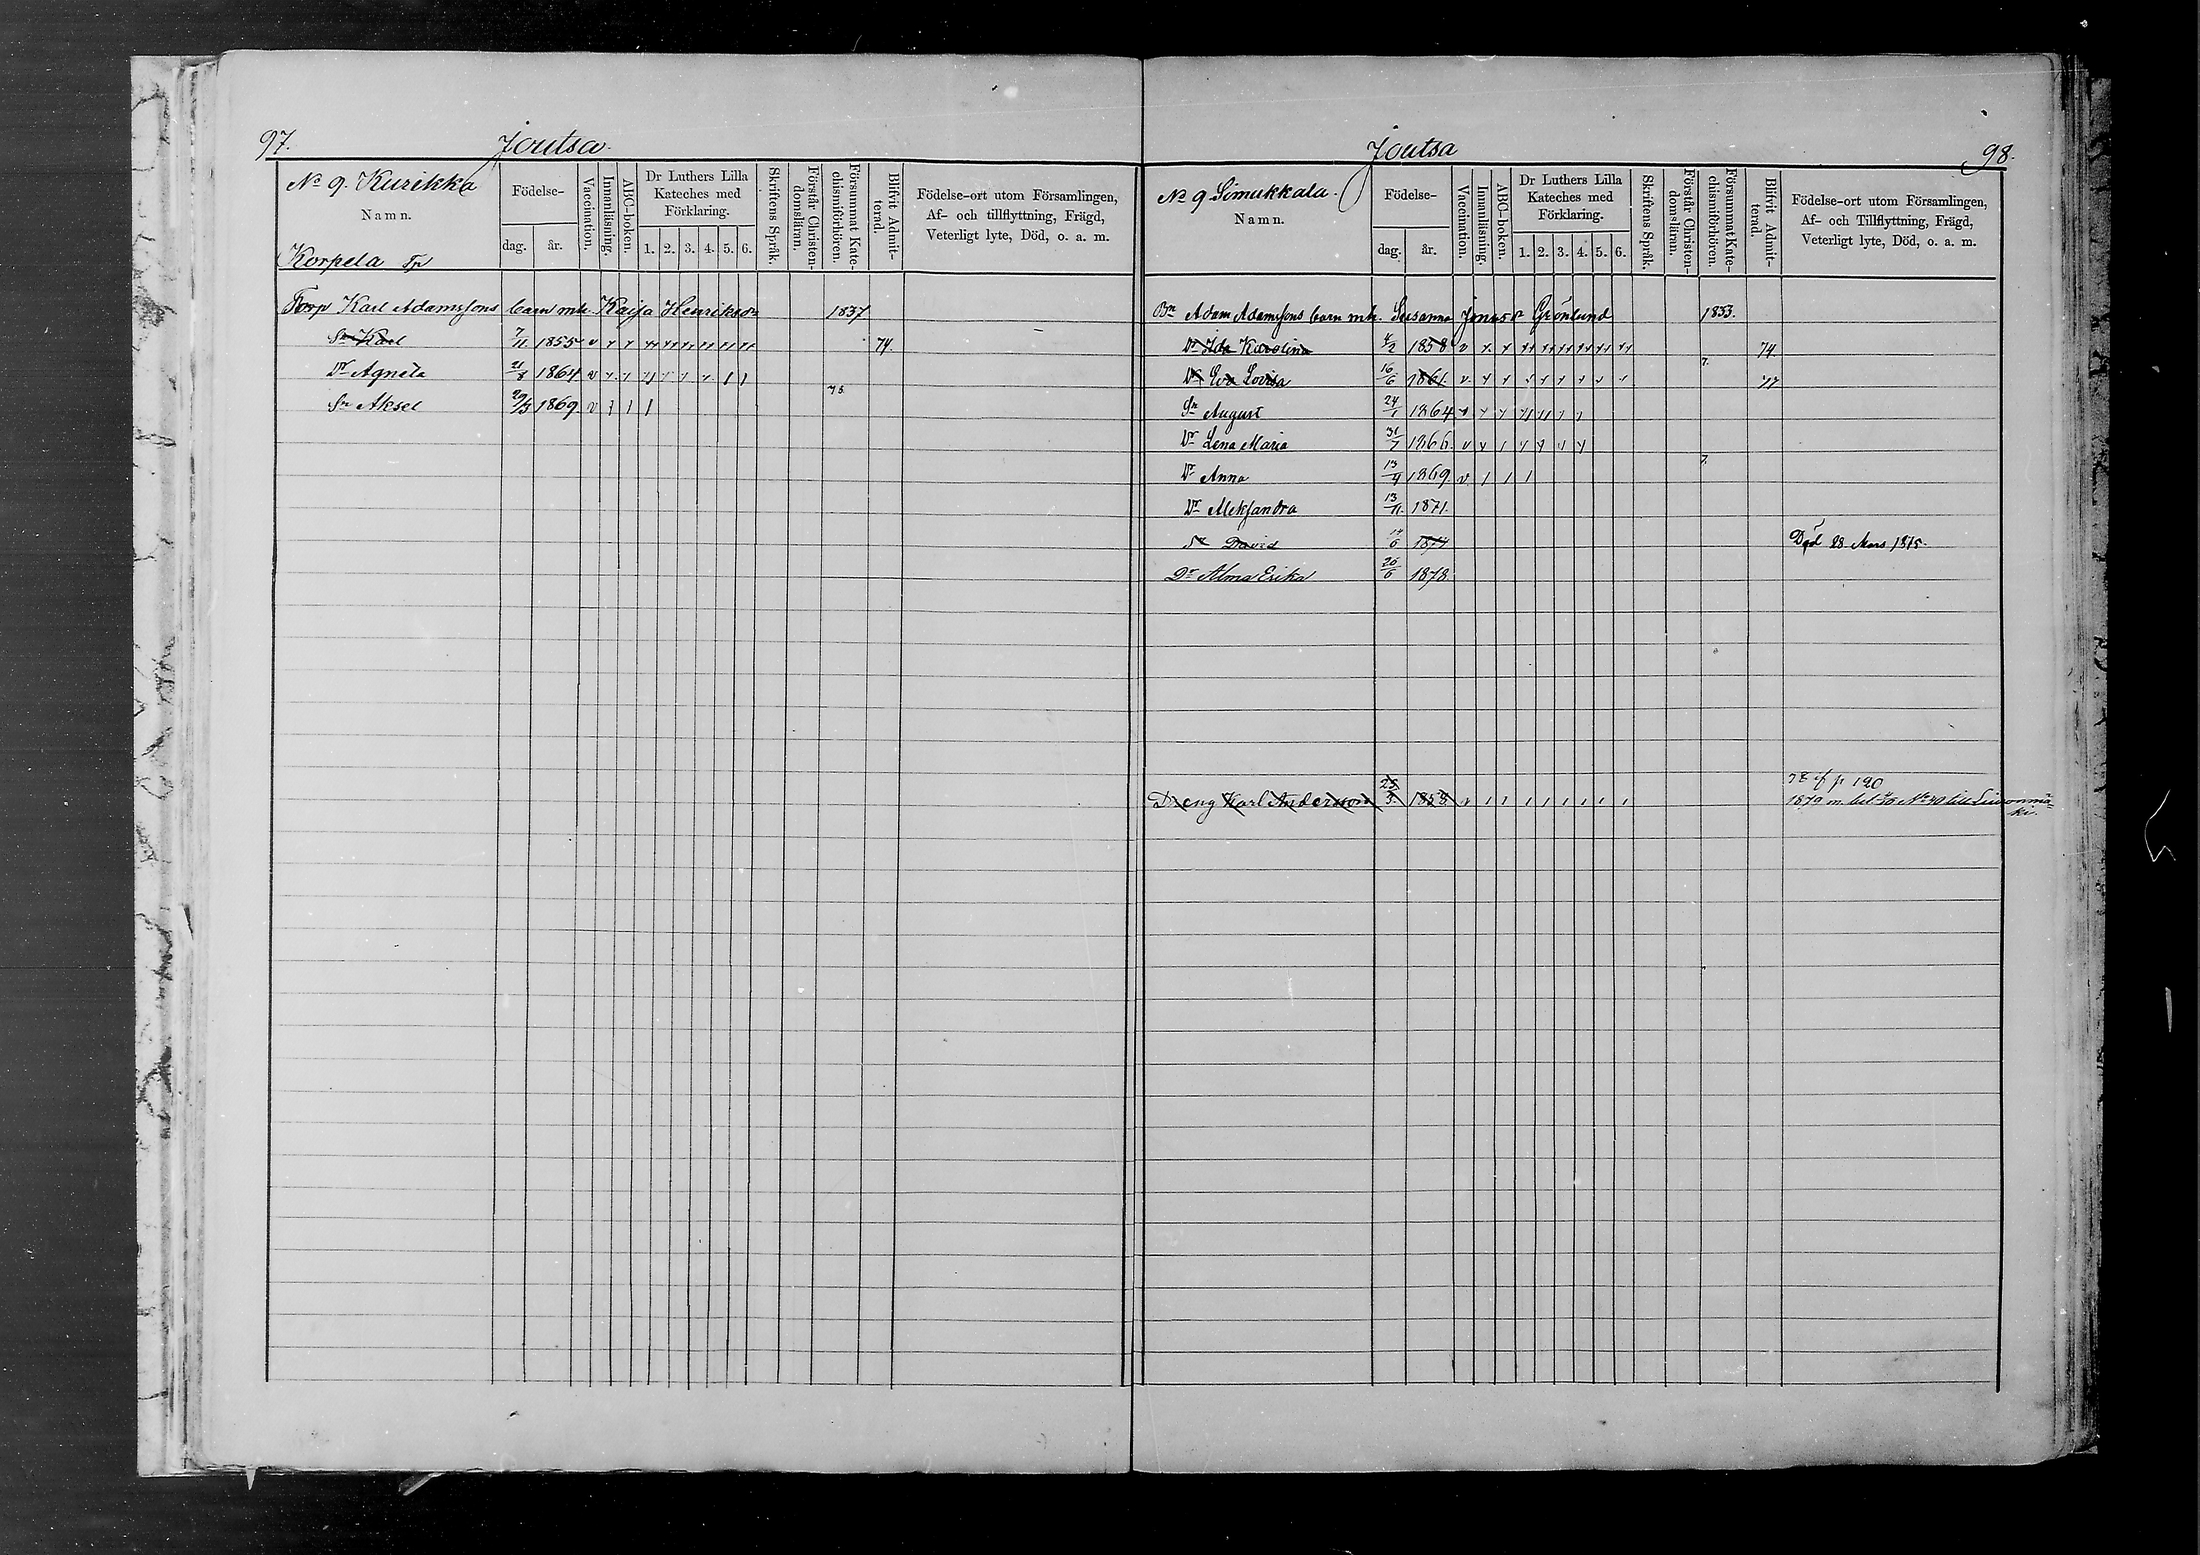 97.
Joutsa.
No 9. Kurikka
Namn.
Korpela Tp
Födelse-
dag.
år.
Vaccination.
Innanläsning.
ABC-boken.
Dr Luthers Lilla
Kateches med
Förklaring.
1. 2. 3. 4. 5. 6.
Skriftens Språk.
Förstår Christen-
domsläran.
Försummat Kate-
chismiförhören.
Blifvit Admit-
terad.
Födelse-ort utom Församlingen,
Af- och tillflyttning, Frägd,
Veterligt lyte, Död, o. a. m.
Torp Karl Adamssons barn m. Kaisa Henriksdr 1837
Sn Karl 7/11 1855 v 74.
Dr Agneta 21/8 1864 v
Sn Aksel 29/3 1869 v
Joutsa
98.
No 9 Simukkala.
Namn.
Födelse-
dag.
år.
Vaccination.
Innanläsning.
ABC-boken.
Dr Luthers Lilla
Kateches med
Förklaring.
1. 2. 3. 4. 5. 6.
Skriftens Språk.
Förstår Christen-
domsläran.
Försummat Kate-
chismiförhören.
Blifvit Admit-
terad.
Födelse-ort utom Församlingen,
Af- och Tillflyttning, Frägd,
Veterligt lyte, Död, o. a. m.
Bn Adam Adamssons barn m. Susanna Jonasdr Grönlund 1833.
Dr Ida Karolina 4/2 1858 v 74
Dr Eva Lovisa 16/6 1861. v 77
Sn August 24/1 1864
Dr Lena Maria 31/7 1866 v
Dr Anna 13/4 1869 v
Dr Aleksandra 13/11. 1871.
Sn David 1874 Död 28 Mars 1875.
Dr Alma Erika 26/6 1878
p 190
Dreng Karl Andersson 25/3. 1858 v 1879 m. bet No 40 till Simonmä-
ki.